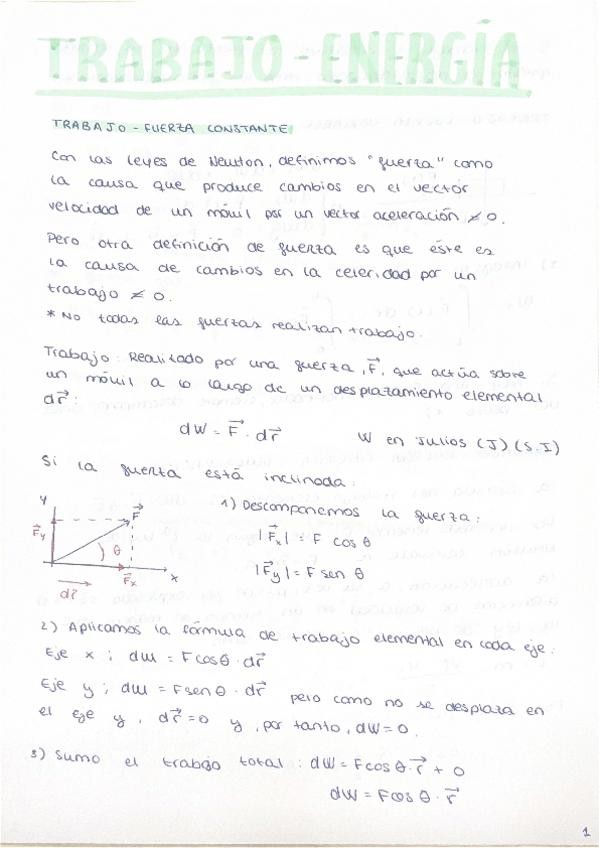 TRABAJO - ENERGÍA
TRABAJO - FUERZA CONSTANTE:
Con las leyes de Newton, definimos "fuerza" como
la causa que produce cambios en el vector
velocidad de un móvil por un vector aceleración ≠ 0.
Pero otra definición de fuerza es que éste es
la causa de cambios en la celeridad por un
trabajo ≠ 0.
* No todas las fuerzas realizan trabajo.
Trabajo: Realizado por una fuerza, F⃗, que actúa sobre
un móvil a lo largo de un desplazamiento elemental
dr⃗:
dW = F⃗ · dr⃗ W en Julios (J) (S.I)
Si la fuerza está inclinada:
1) Descomponemos la fuerza:
|F⃗x| = F cos θ
|F⃗y| = F sen θ
y
F⃗
F⃗y
θ
F⃗x
x
dr⃗
2) Aplicamos la fórmula de trabajo elemental en cada eje:
Eje x; dW = F cos θ · dr⃗
Eje y; dW = F sen θ · dr⃗ pero como no se desplaza en
el eje y, dr⃗ = 0 y, por tanto, dW = 0.
3) Sumo el trabajo total: dW = F cos θ · r⃗ + 0
dW = F cos θ · r⃗
1